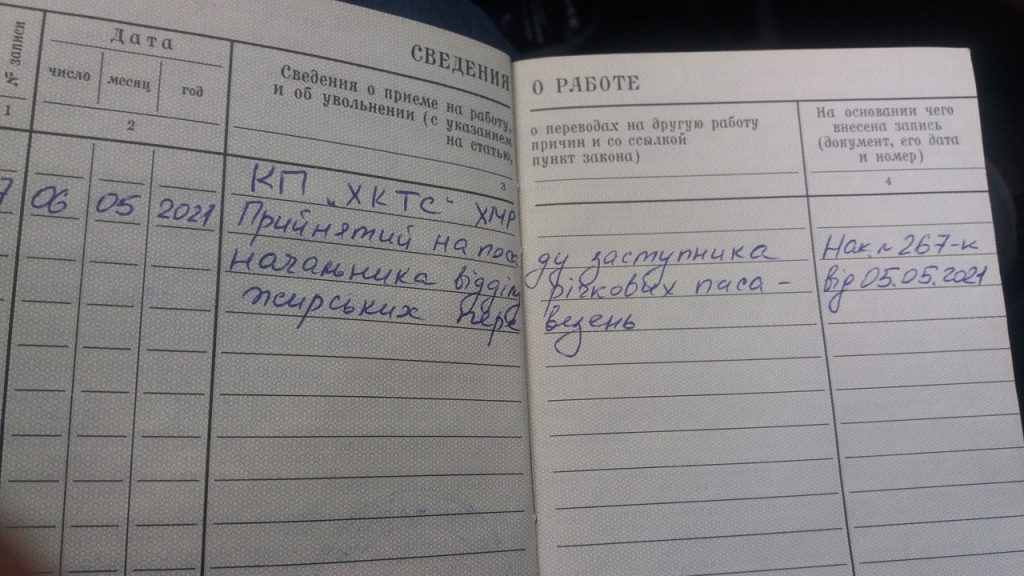 СВЕДЕНИЯ О РАБОТЕ
№ записи
Дата
число месяц год
Сведения о приеме на работу, о переводах на другую работу
и об увольнении (с указанием причин и со ссылкой
на статью, пункт закона)
На основании чего
внесена запись
(документ, его дата
и номер)
1 2 3 4
КП „ХКТС" ХМР
7 06 05 2021 Прийнятий на посаду заступника Нак. № 267-к
начальника відділу річкових паса- від 05.05.2021
жирських перевезень